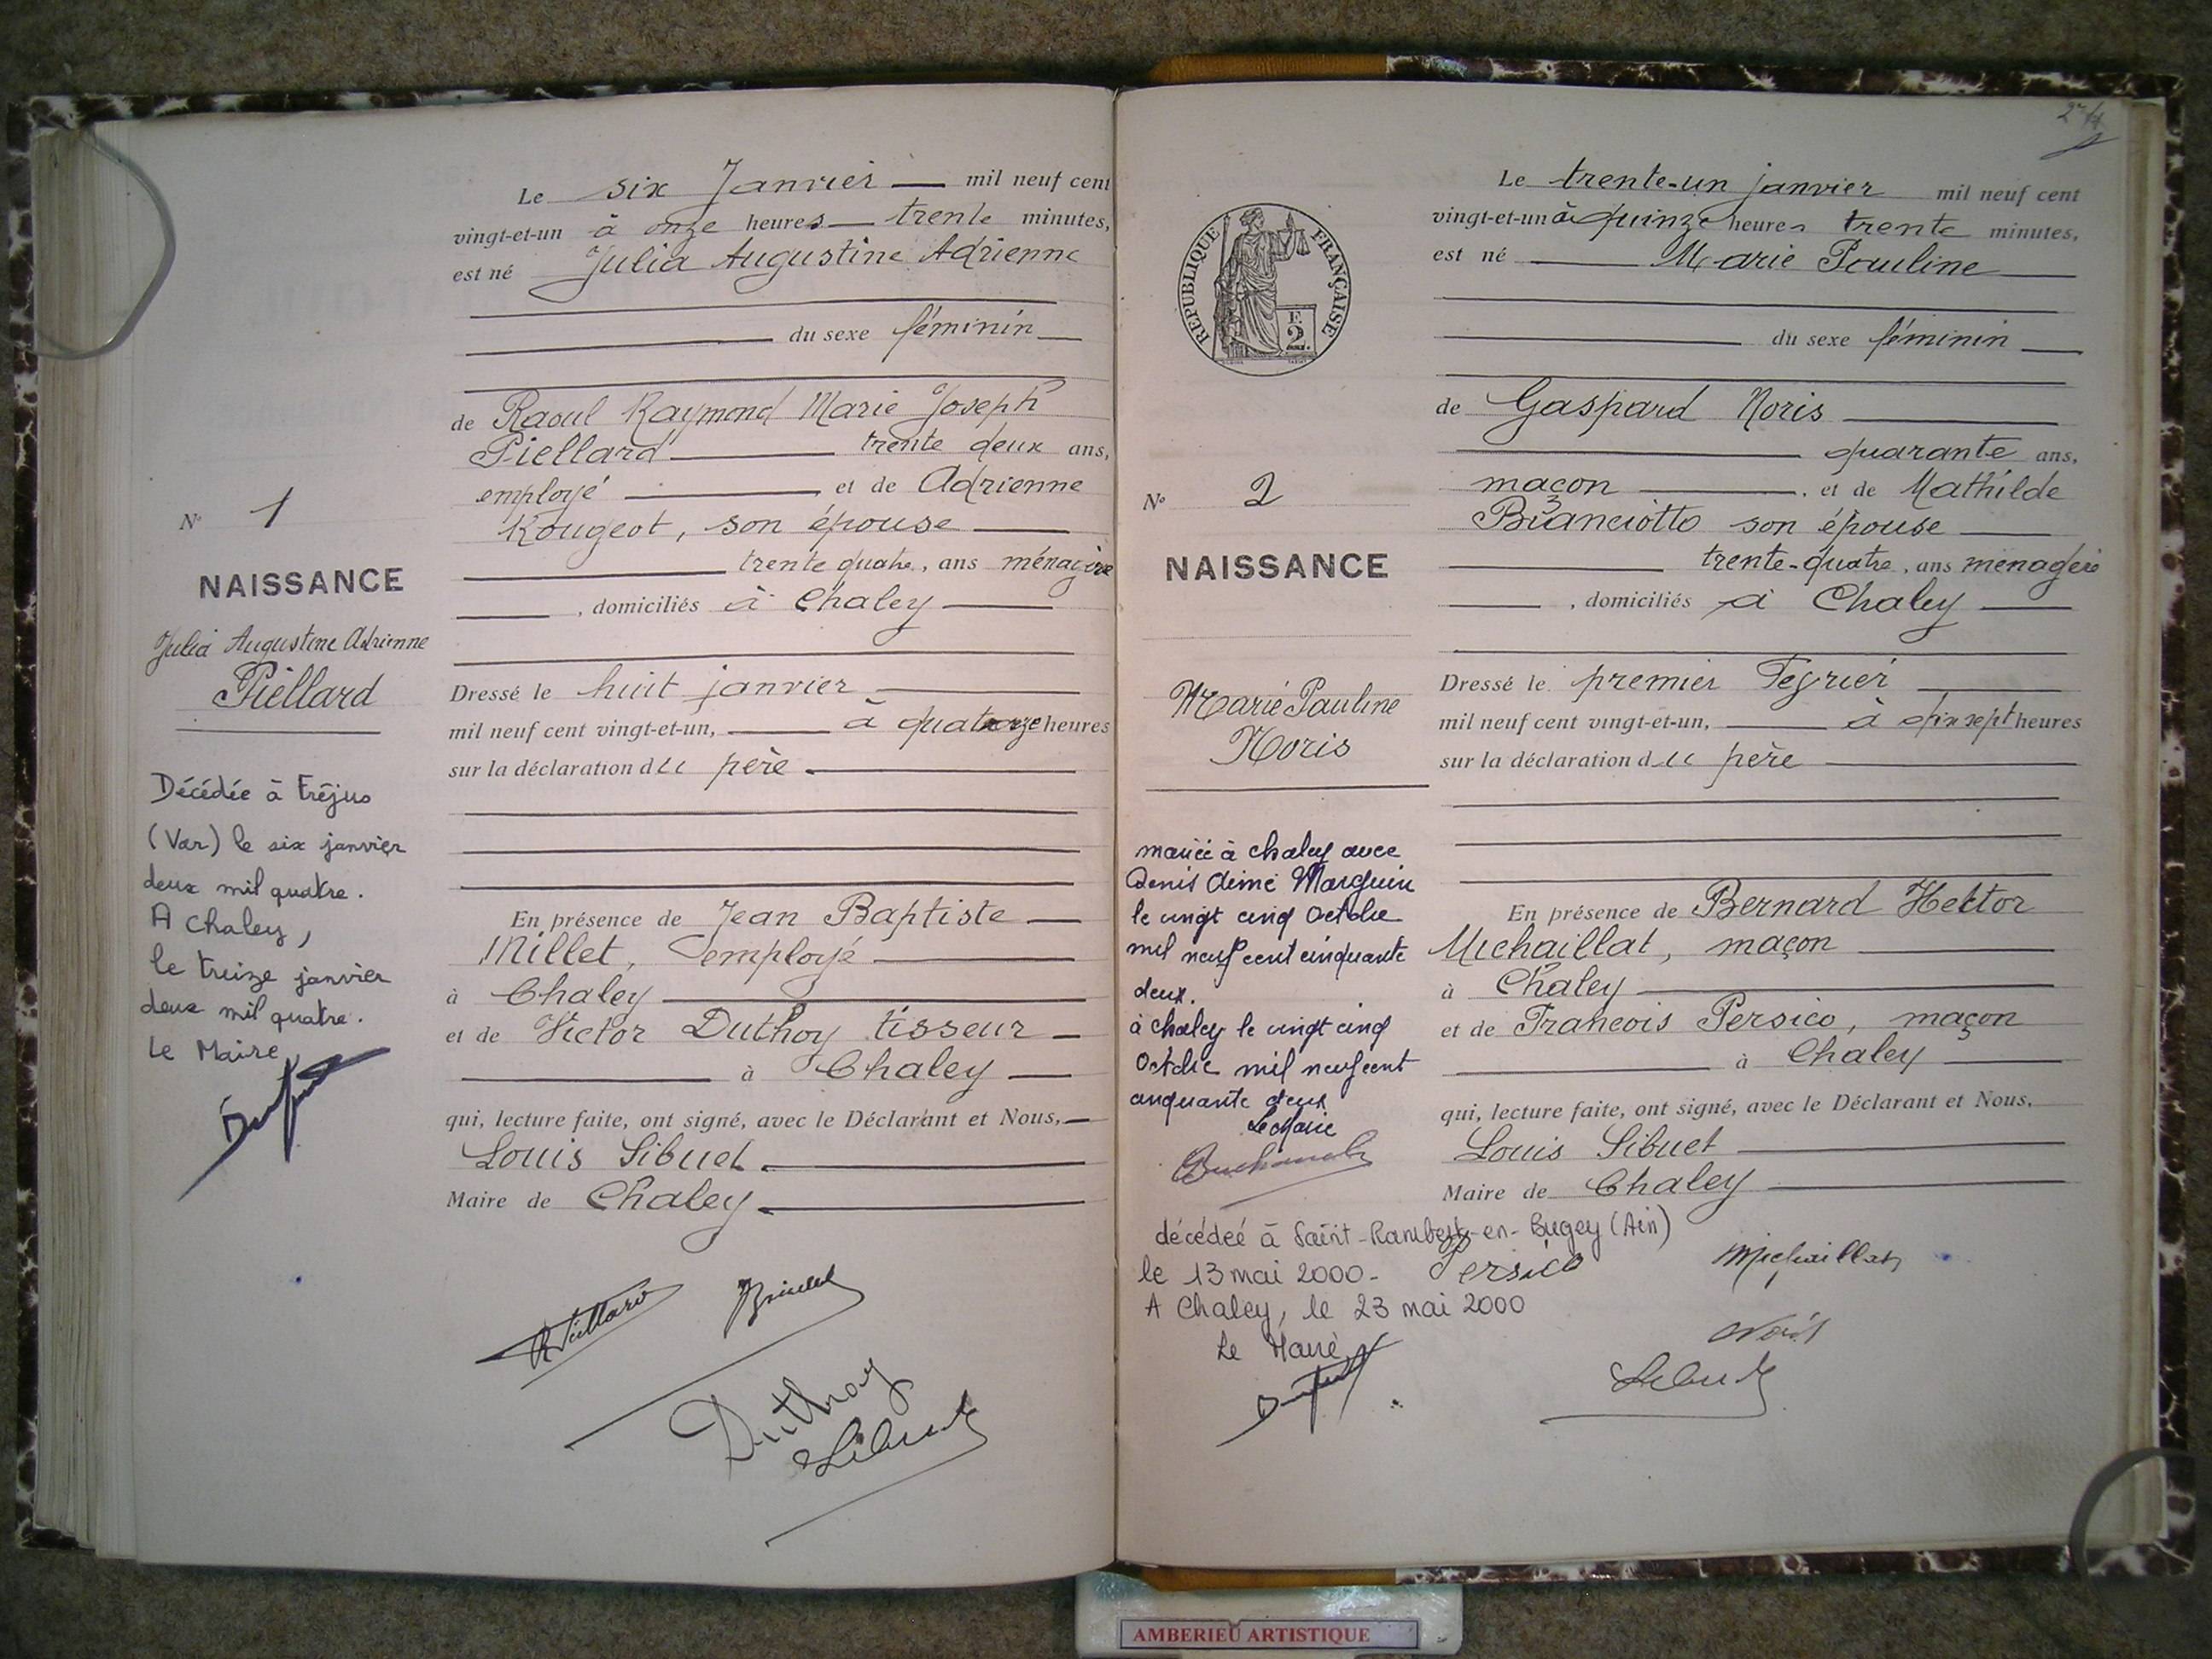 Le six Janvier mil neuf cent
vingt-et-un à onze heures trente minutes,
est né Julia Augustine Adrienne
du sexe féminin
de Raoul Raymond Marie Joseph
Piellard trente deux ans,
employé et de Adrienne
Rougeot, son épouse
trente quatre, ans ménagère
, domiciliés à Chaley
Dressé le huit janvier
mil neuf cent vingt-et-un, à quatorze heures
sur la déclaration du père
En présence de Jean Baptiste
Millet, employé
à Chaley
et de Victor Duthoy tisseur
à Chaley
qui, lecture faite, ont signé, avec le Déclarant et Nous,
Louis Sibuet
Maire de Chaley
Duthoy
Sibuet
N° 1
NAISSANCE
Julia Augustine Adrienne
Piellard
Décédée à Fréjus
(Var) le six janvier
deux mil quatre.
A Chaley,
le treize janvier
deux mil quatre.
Le Maire
27/4
REPUBLIQUE FRANÇAISE
2
Le trente-un janvier mil neuf cent
vingt-et-un à quinze heures trente minutes,
est né Marie Pauline
du sexe féminin
de Gaspard Noris
quarante ans,
maçon, et de Mathilde
Bianciotto son épouse
trente-quatre, ans ménagère
, domiciliés à Chaley
Dressé le premier Février
mil neuf cent vingt-et-un, à dix sept heures
sur la déclaration du père
En présence de Bernard Hector
Michaillat, maçon
à Chaley
et de Francois Persico, maçon
à Chaley
qui, lecture faite, ont signé, avec le Déclarant et Nous,
Louis Sibuet
Maire de Chaley
N° 2
NAISSANCE
Marie Pauline
Noris
mariée à chaley avec
Denis Aimé Marguin
le vingt cinq Octobre
mil neuf cent cinquante
deux.
à chaley le vingt cinq
Octobre mil neuf cent
cinquante deux
Le Maire
décédeé à Saint-Rambert-en-Bugey (Ain)
le 13 mai 2000-
A Chaley, le 23 mai 2000
Le Maire
Persico
Michaillat
Noris
Sibuet
AMBERIEU ARTISTIQUE